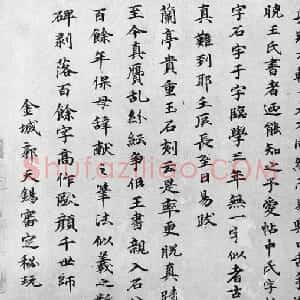 晓王氏書者迺能知予愛帖中氏字
字石字于字臨學三年無一字似者
真難到耶壬辰長至日易跋
蘭亭貴重玉石刻是率更脫真蹟
至今真贋亂紛紜爭伹王書親入石
百餘年保母辭獻之筆法似羲之
碑剥落百餘字高作歐顏千世師
金城郭天錫審定秘玩
Shufaziliao.COM